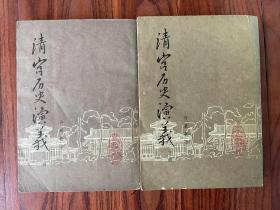 清宫历史演义
清宫历史演义